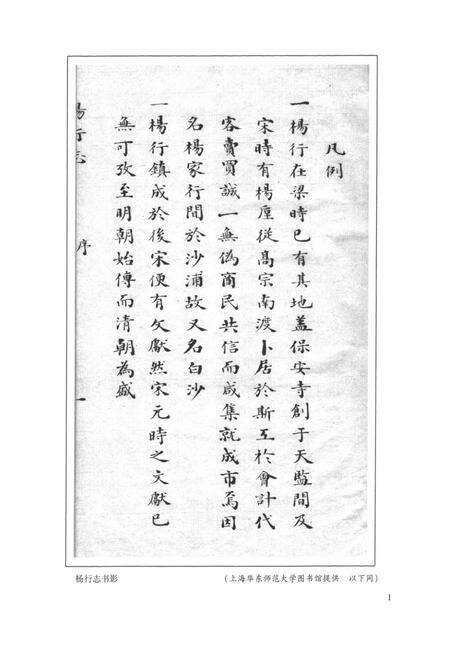 凡例
一楊行在梁時已有其地蓋保安寺創于天監間及
宋時有楊厘從高宗南渡卜居於斯工於會計代
客賣買誠一無偽商民共信而咸集就成市焉因
名楊家行間於沙浦故又名白沙
一楊行鎮成於後宋便有文獻然宋元時之文獻已
無可攷至明朝始傳而清朝為盛
楊行志 序 一
杨行志书影
(上海华东师范大学图书馆提供 以下同)
1